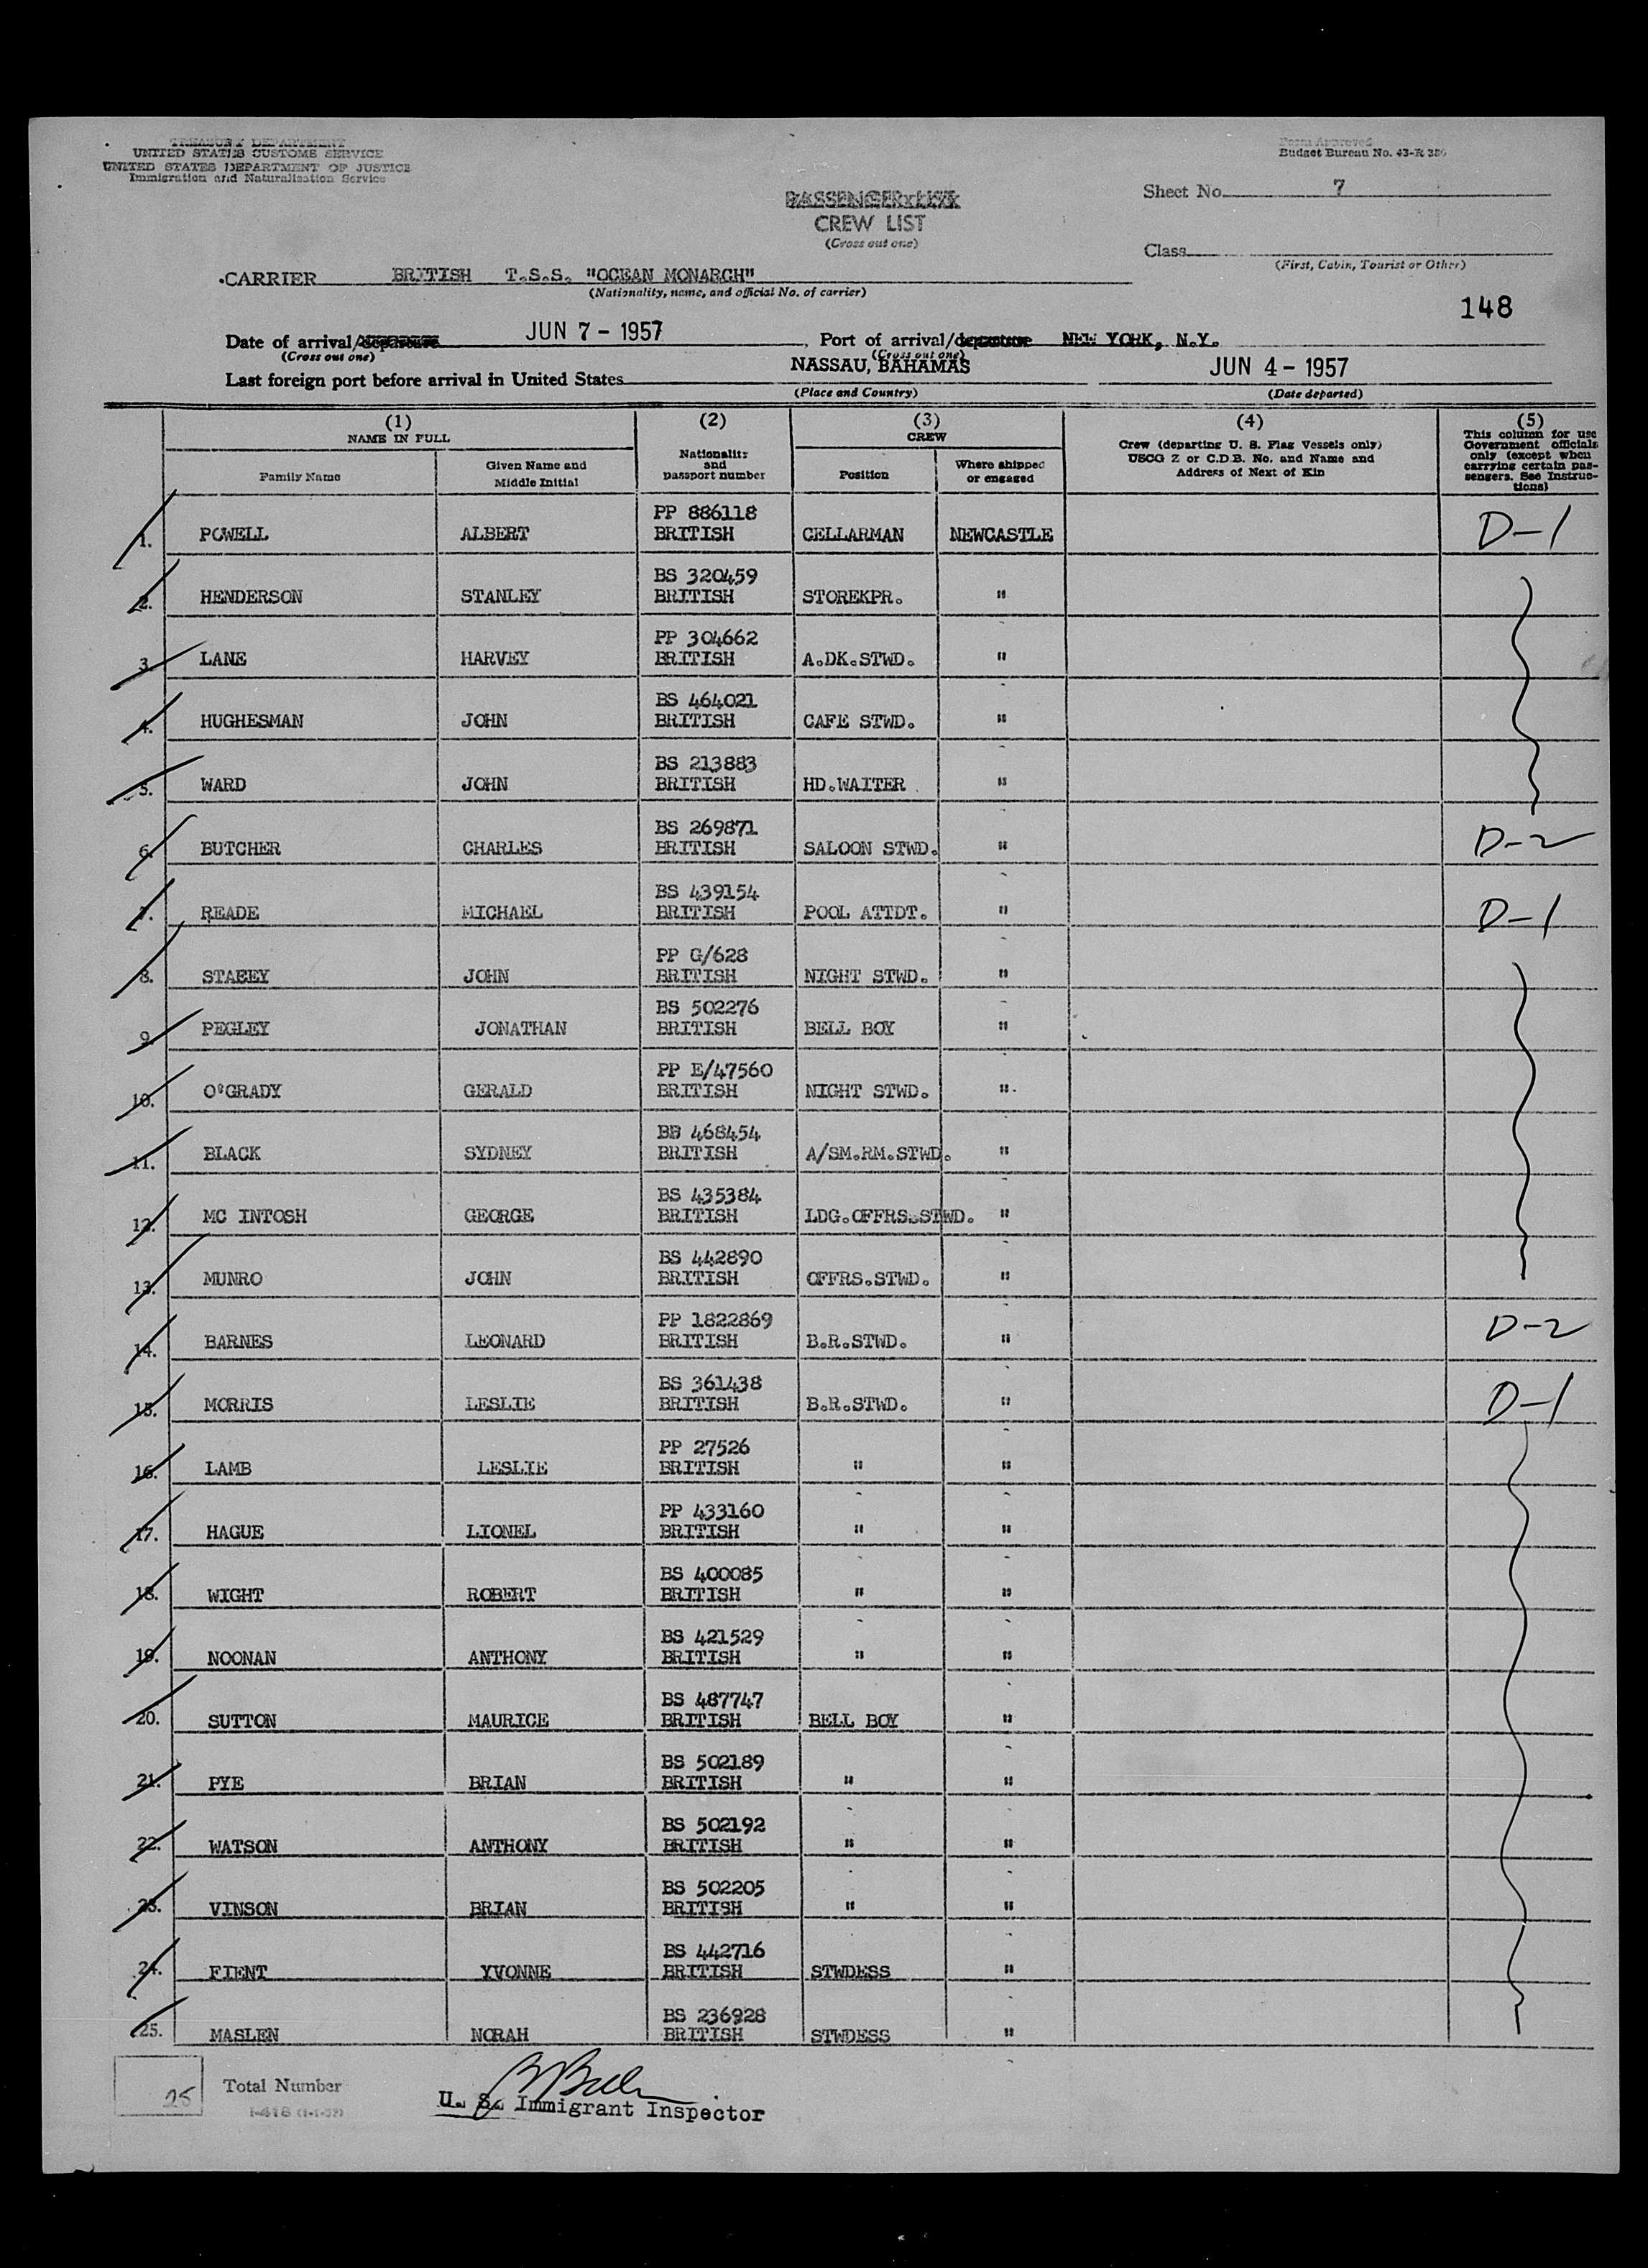 TREASURY DEPARTMENT
UNITED STATES CUSTOMS SERVICE
UNITED STATES DEPARTMENT OF JUSTICE
Immigration and Naturalization Service
Form Approved
Budget Bureau No. 43-R 386
Sheet No. 7
PASSENGER LIST
CREW LIST
(Cross out one)
Class
(First, Cabin, Tourist or Other)
CARRIER BRITISH T.S.S. "OCEAN MONARCH"
(Nationality, name, and official No. of carrier)
148
Date of arrival/departure JUN 7 - 1957, Port of arrival/departure NEW YORK, N.Y.
(Cross out one) (Cross out one)
Last foreign port before arrival in United States NASSAU, BAHAMAS JUN 4 - 1957
(Place and Country) (Date departed)
(1) (2) (3) (4) (5)
NAME IN FULL
Family Name
Given Name and Middle Initial
Nationality and passport number
CREW
Position
Where shipped or engaged
Crew (departing U. S. Flag Vessels only) USCG Z or C.D.B. No. and Name and Address of Next of Kin
This column for use Government officials only (except when carrying certain passengers. See Instructions)
1. POWELL ALBERT PP 886118 BRITISH CELLARMAN NEWCASTLE D-1
2. HENDERSON STANLEY BS 320459 BRITISH STOREKPR. "
3. LANE HARVEY PP 304662 BRITISH A.DK.STWD. "
4. HUGHESMAN JOHN BS 464021 BRITISH CAFE STWD. "
5. WARD JOHN BS 213883 BRITISH HD.WAITER "
6. BUTCHER CHARLES BS 269871 BRITISH SALOON STWD. " D-2
7. READE MICHAEL BS 439154 BRITISH POOL ATTDT. " D-1
8. STABEY JOHN PP G/628 BRITISH NIGHT STWD. "
9. PEGLEY JONATHAN BS 502276 BRITISH BELL BOY "
10. O'GRADY GERALD PP E/47560 BRITISH NIGHT STWD. "
11. BLACK SYDNEY BB 468454 BRITISH A/SM.RM.STWD. "
12. MC INTOSH GEORGE BS 435384 BRITISH LDG.OFFRS.STWD. "
13. MUNRO JOHN BS 442890 BRITISH OFFRS.STWD. "
14. BARNES LEONARD PP 1822869 BRITISH B.R.STWD. " D-2
15. MORRIS LESLIE BS 361438 BRITISH B.R.STWD. " D-1
16. LAMB LESLIE PP 27526 BRITISH " "
17. HAGUE LIONEL PP 433160 BRITISH " "
18. WIGHT ROBERT BS 400085 BRITISH " "
19. NOONAN ANTHONY BS 421529 BRITISH " "
20. SUTTON MAURICE BS 487747 BRITISH BELL BOY "
21. PYE BRIAN BS 502189 BRITISH " "
22. WATSON ANTHONY BS 502192 BRITISH " "
23. VINSON BRIAN BS 502205 BRITISH " "
24. FIENT YVONNE BS 442716 BRITISH STWDESS "
25. MASLEN NORAH BS 236928 BRITISH STWDESS "
25 Total Number
I-418 (1-1-57)
U. S. Immigrant Inspector